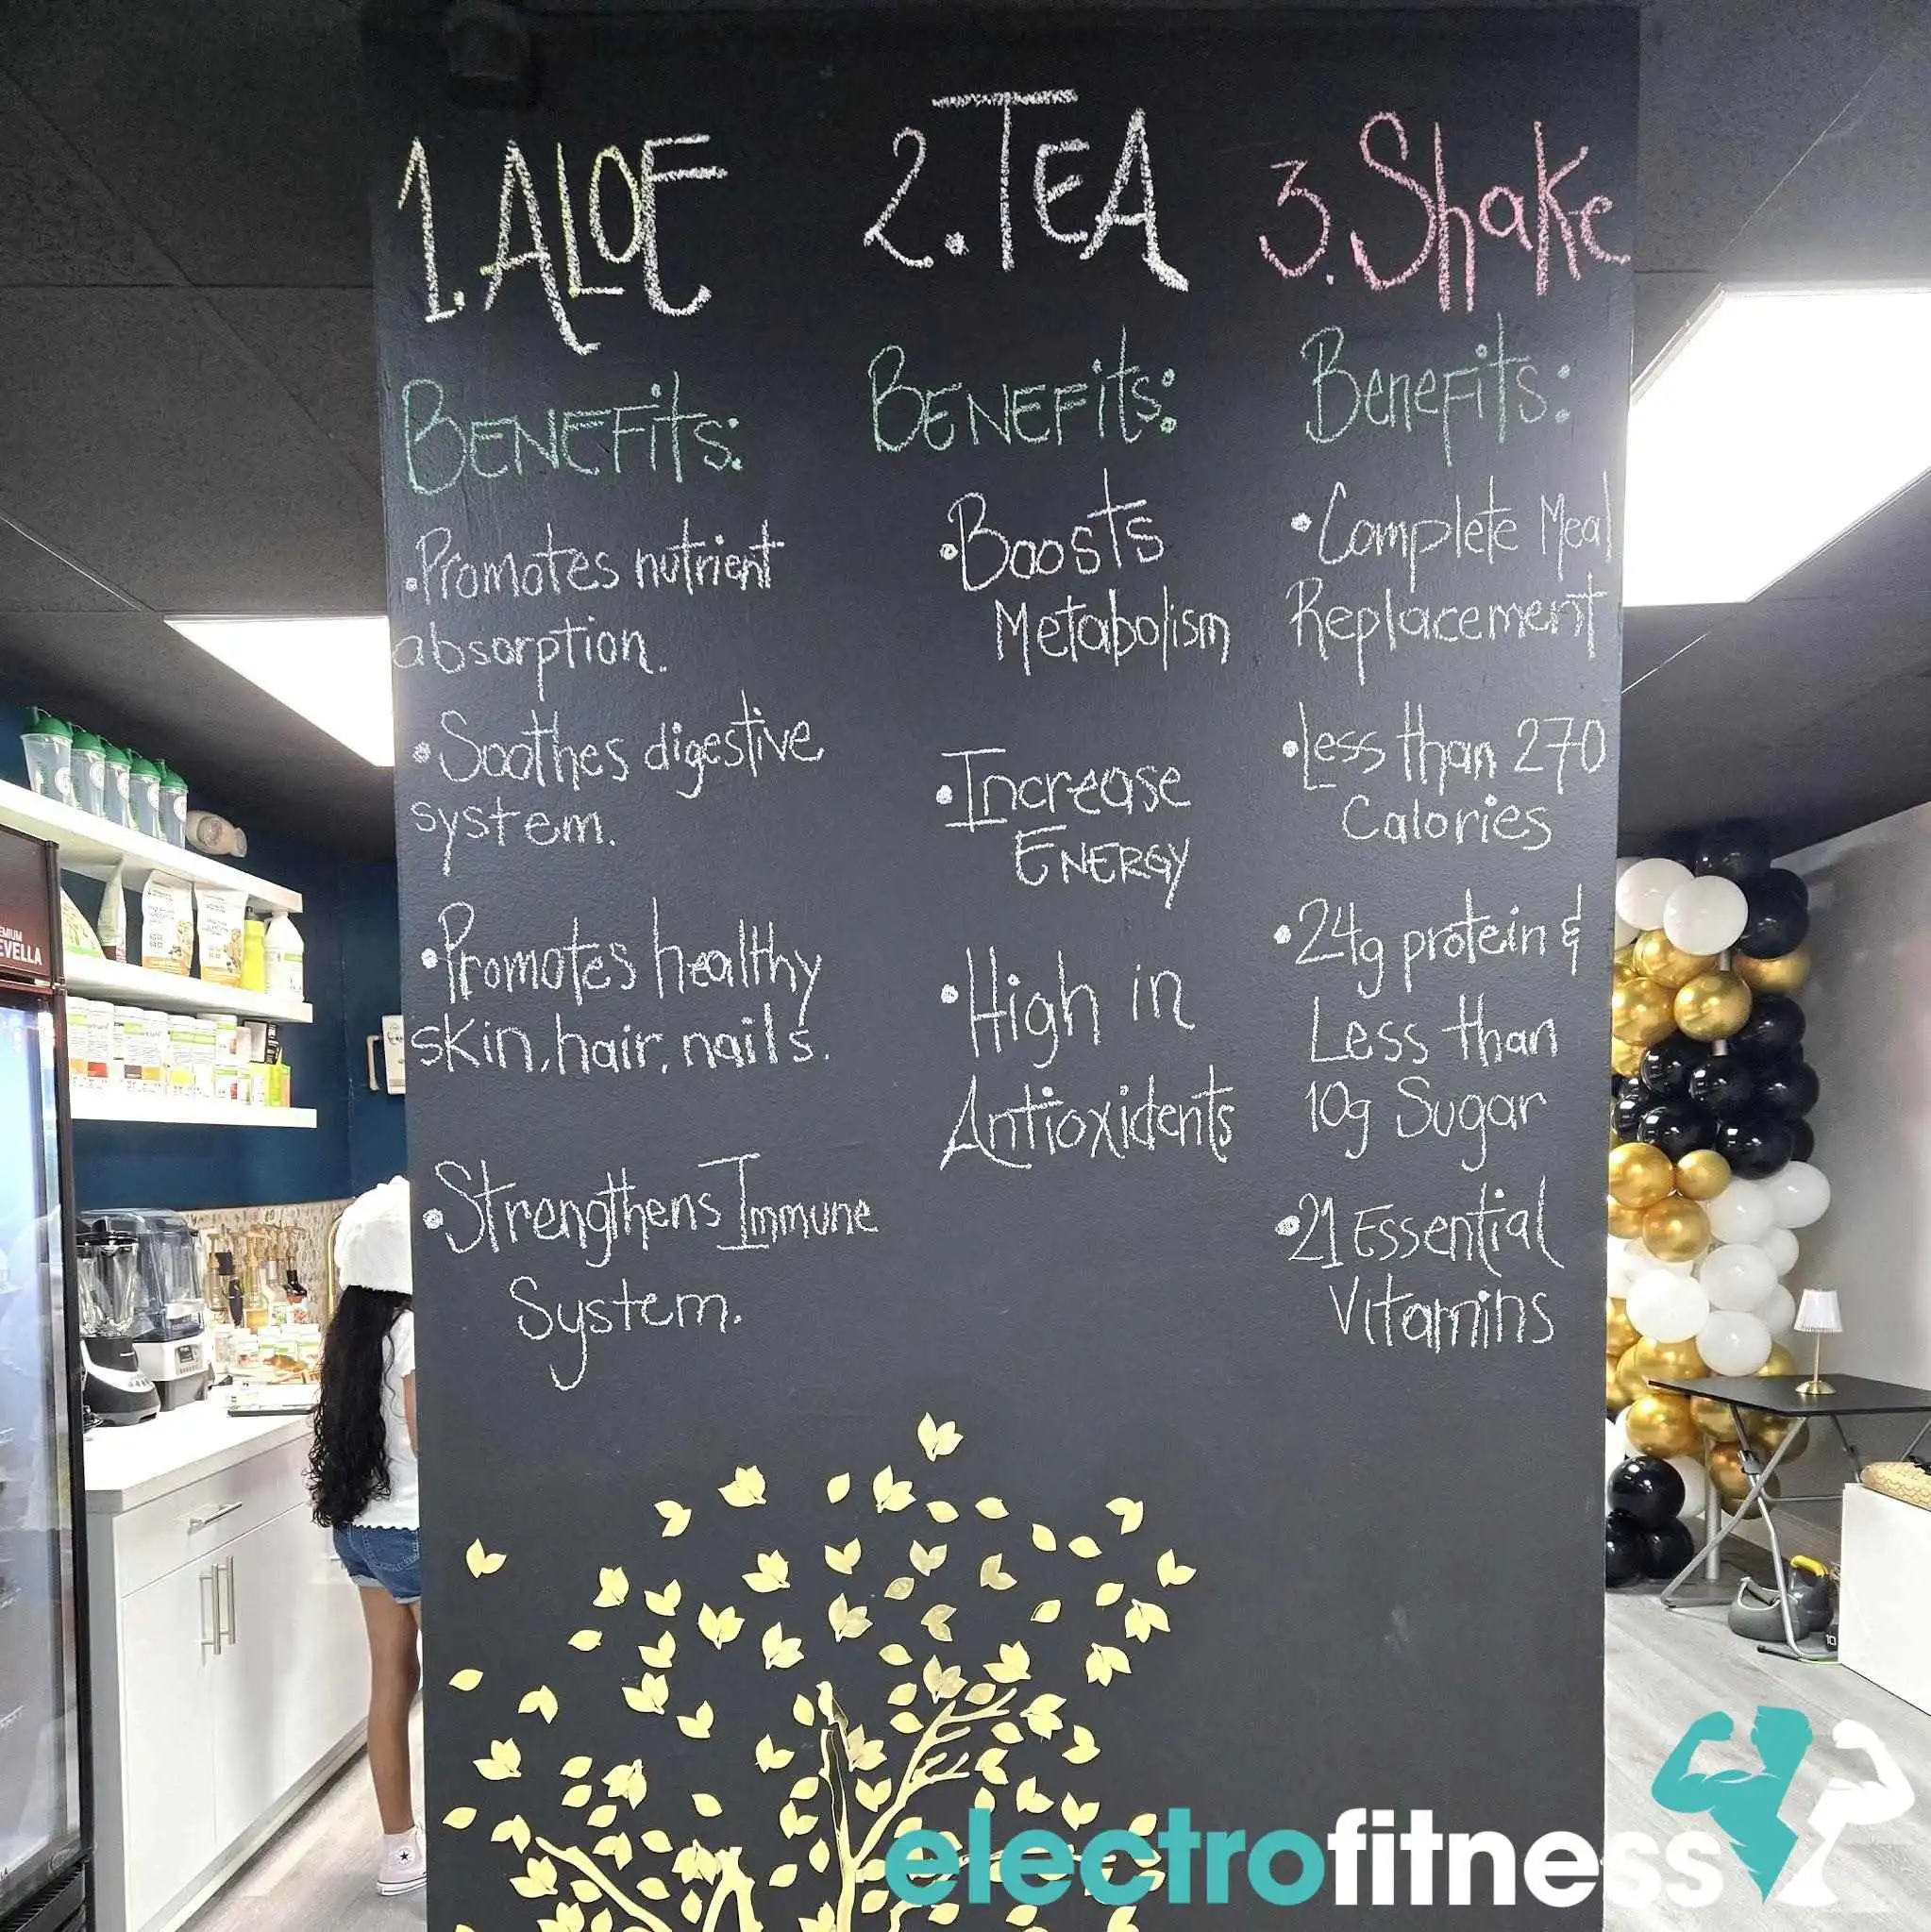 1. ALOE
BENEFits:
•Promotes nutrient
absorption.
•Soothes digestive
system.
•Promotes healthy
skin, hair, nails.
•Strengthens Immune
System.
2. TEA
BENEFits:
•Boosts
Metabolism
•Increase
ENERGY
•High in
Antioxidents
3. Shake
Benefits:
•Complete Meal
Replacement
•Less than 270
Calories
•24g protein &
Less than
10g Sugar
•21 Essential
Vitamins
EVELLA
electrofitness